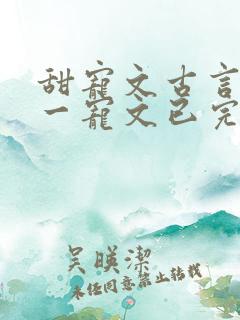 甜寵文古言
一寵文已完
吴暎潔
未任同意禁止转载